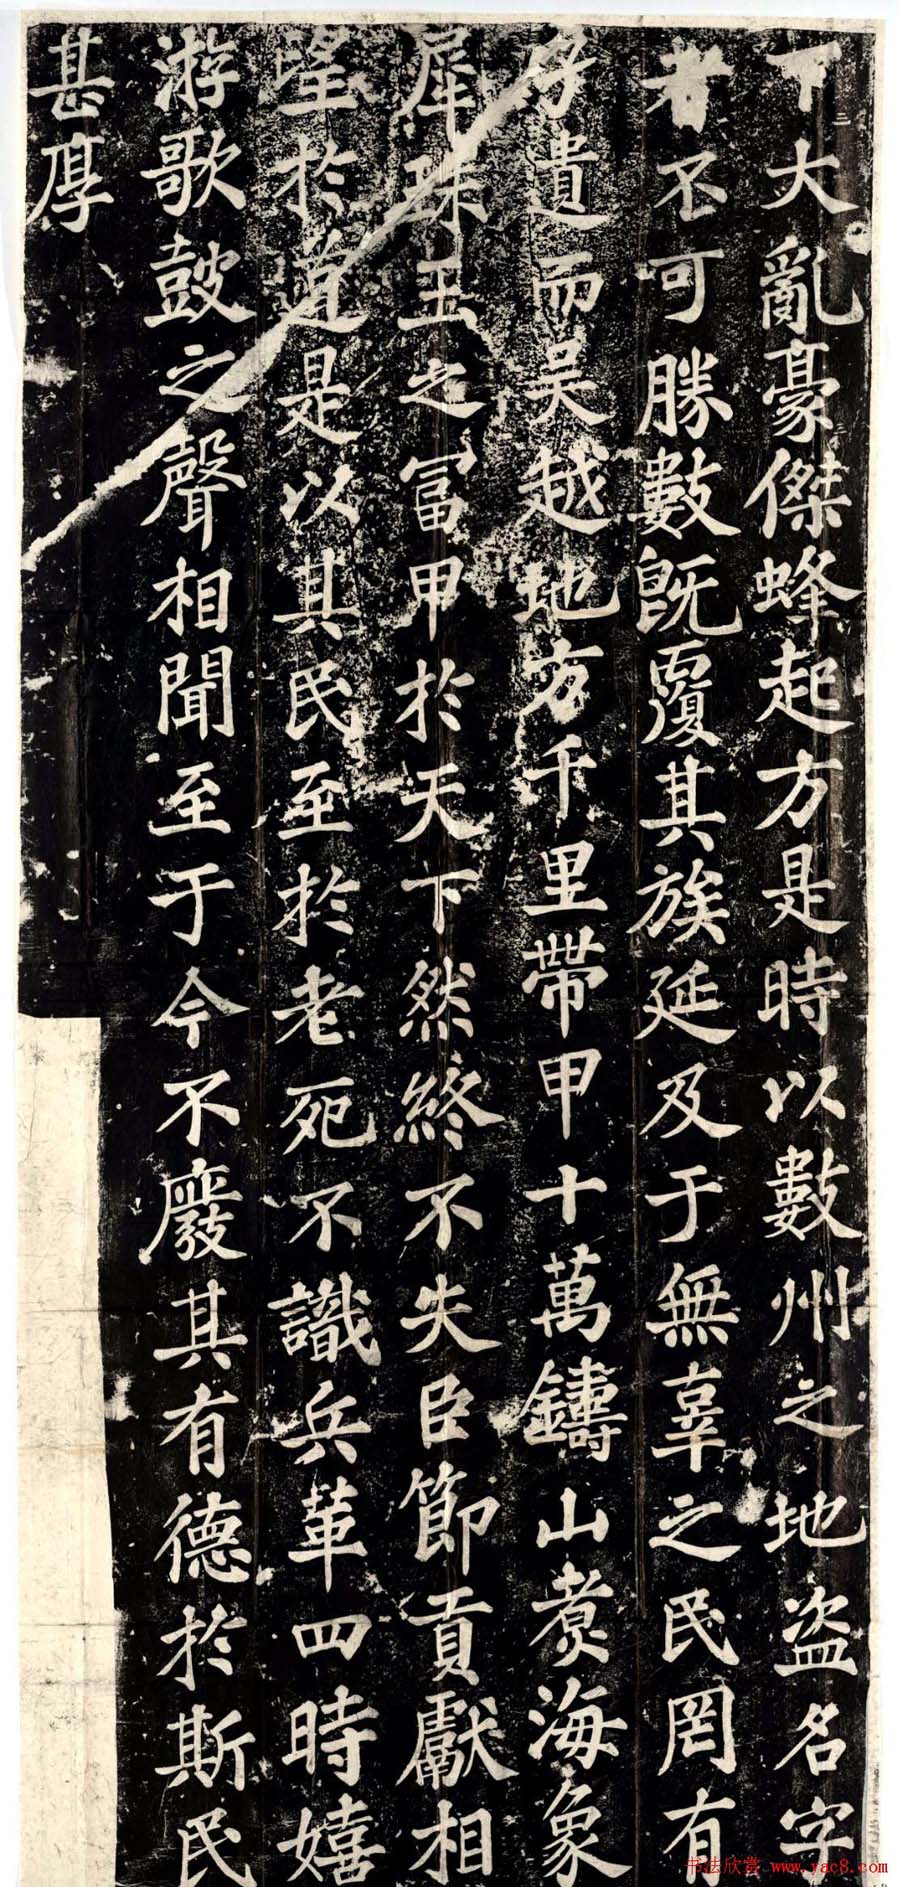 下大亂豪傑蜂起方是時以數州之地盜名字
者不可勝數旣覆其族延及于無辜之民罔有
孑遺而吴越地方千里帶甲十萬鑄山煑海象
犀珠玉之富甲於天下然終不失臣節貢獻相
望於道是以其民至於老死不識兵革四時嬉
游歌鼓之聲相聞至于今不廢其有德於斯民
甚厚
二
书法欣赏 www.yac8.com